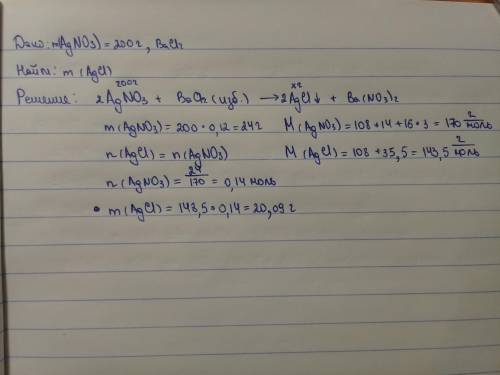 Дано: m(AgNO3) = 200г, BaCl2
Найти: m (AgCl)
Решение: 200г xг
2AgNO3 + BaCl2 (изб.) → 2AgCl↓ + Ba(NO3)2
m(AgNO3) = 200 • 0,12 = 24г M(AgNO3) = 108 + 14 + 16 • 3 = 170 г/моль
n(AgCl) = n(AgNO3) M(AgCl) = 108 + 35,5 = 143,5 г/моль
n(AgNO3) = 24/170 = 0,14 моль
• m(AgCl) = 143,5 • 0,14 = 20,09 г